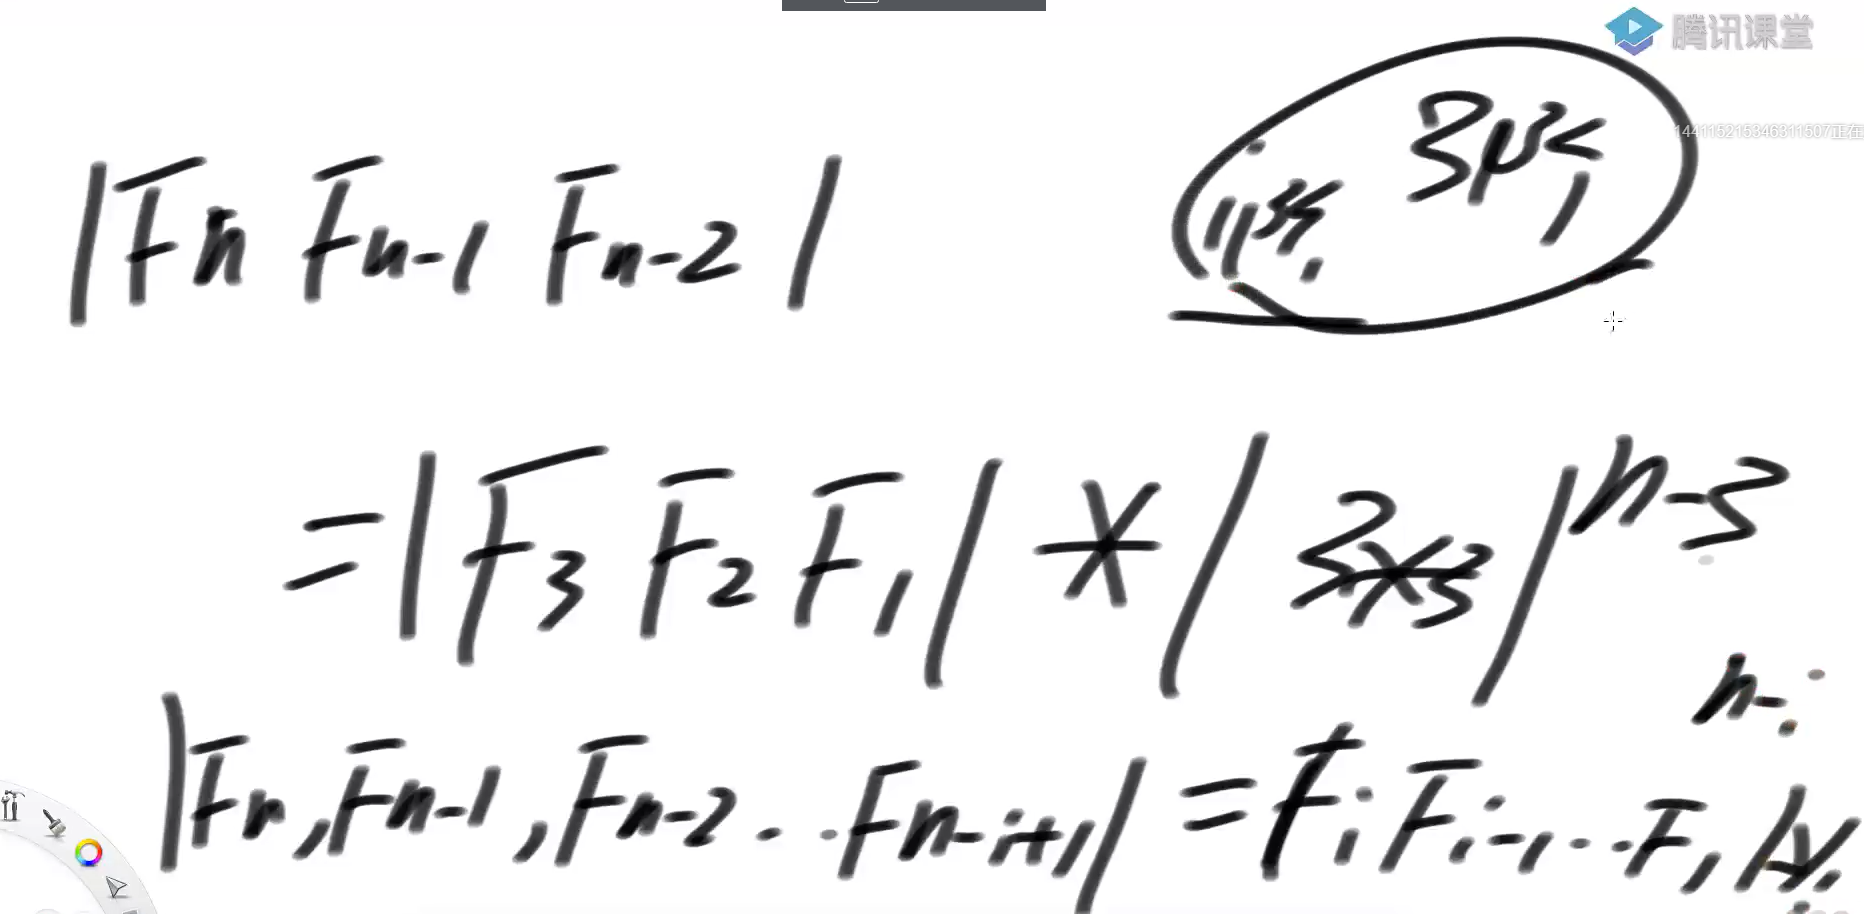 腾讯课堂
3阶
i阶
144115215346311507正在
|Fn Fn-1 Fn-2|
=|F3 F2 F1| * |3×3|^n-3
n-i
|Fn,Fn-1,Fn-2...Fn-i+1|=Fi Fi-1...F1|